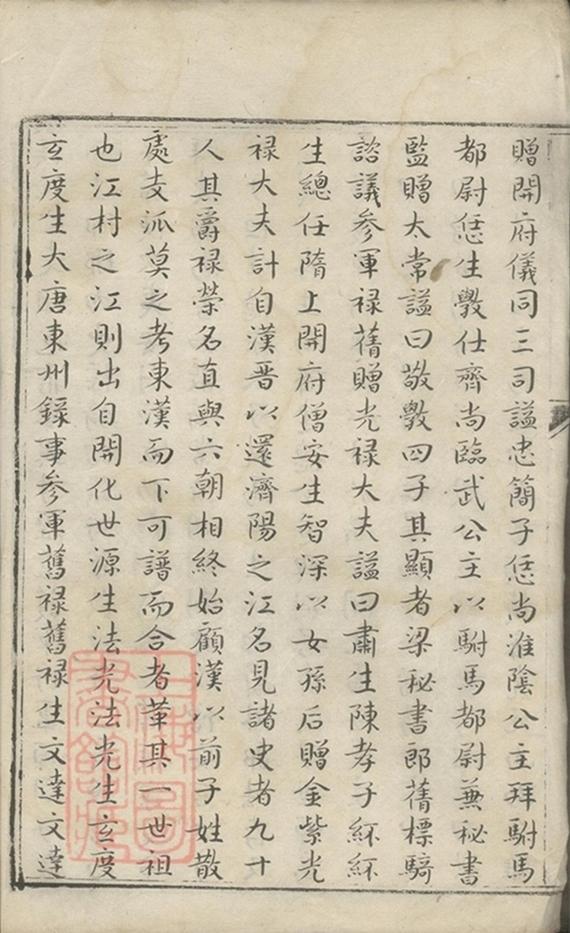 贈開府儀同三司謚忠簡子恁尚淮陰公主拜駙馬
都尉恁生斆仕齊尚臨武公主以駙馬都尉兼秘書
監贈太常謚曰敬斆四子其顯者梁秘書郎蒨標騎
諮議參軍禄蒨贈光禄大夫謚曰肅生陳孝子紑紑
生總任隋上開府僧安生智深以女孫后贈金紫光
禄大夫計自漢晋以還濟陽之江名見諸史者九十
人其爵禄榮名直與六朝相終始顧漢以前子姓散
處支派莫之考東漢而下可譜而合者革其一世祖
也江村之江則出自開化世源生法光法光生玄度
玄度生大唐東州錄事參軍舊禄舊禄生文達文達
上海圖
書館藏